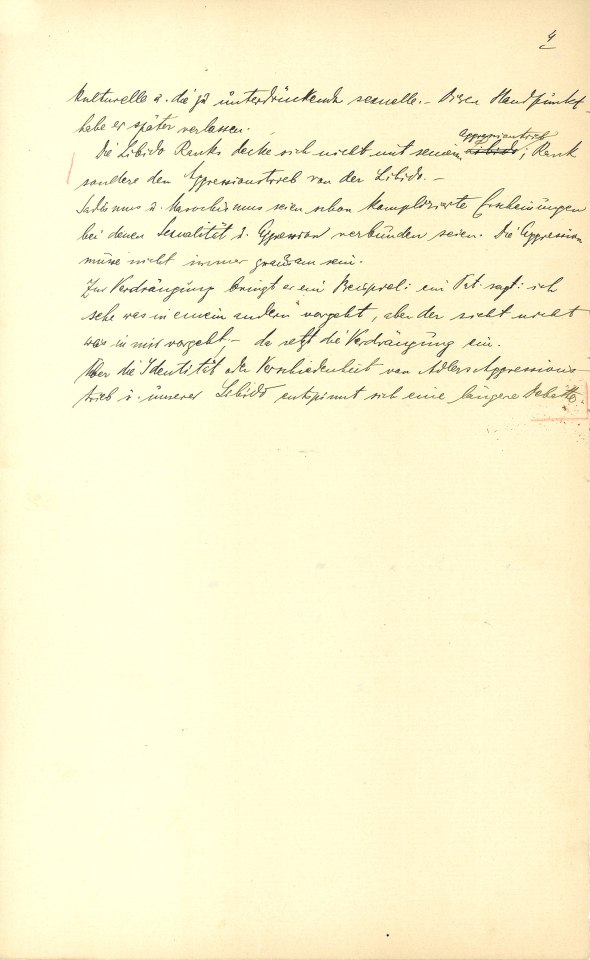 4
kulturelle u. die zu unterdrückende sexuelle. – Diesen Standpunkt
habe er später verlassen.
Die Libido Ranks decke sich nicht mit seinem Aggressionstrieb; Rank
sondere den Aggressionstrieb von der Libido. –
Sadismus u. Masochismus seien schon komplizierte Erscheinungen
bei denen Sexualität u. Aggression verbunden seien. Die Aggression
müsse nicht immer grausam sein.
Zur Verdrängung bringt er ein Beispiel: ein Pat. sagt: ich
sehe was in einem andern vorgeht, aber der sieht nicht
was in mir vorgeht; – da setzt die Verdrängung ein.
Über die Identität oder Verschiedenheit von Adlers Aggressions-
trieb u. unserer Libido entspinnt sich eine längere Debatte.